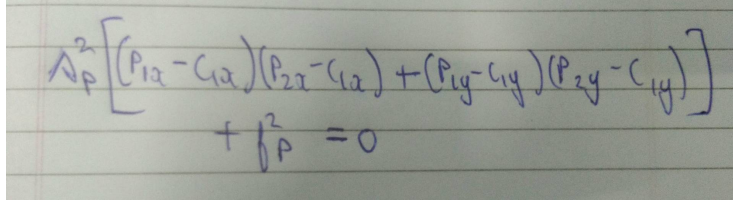 Δ²ₚ[(P₁ₓ - C₁ₓ)(P₂ₓ - C₁ₓ) + (P₁y - C₁y)(P₂y - C₁y)]
+ f²ₚ = 0